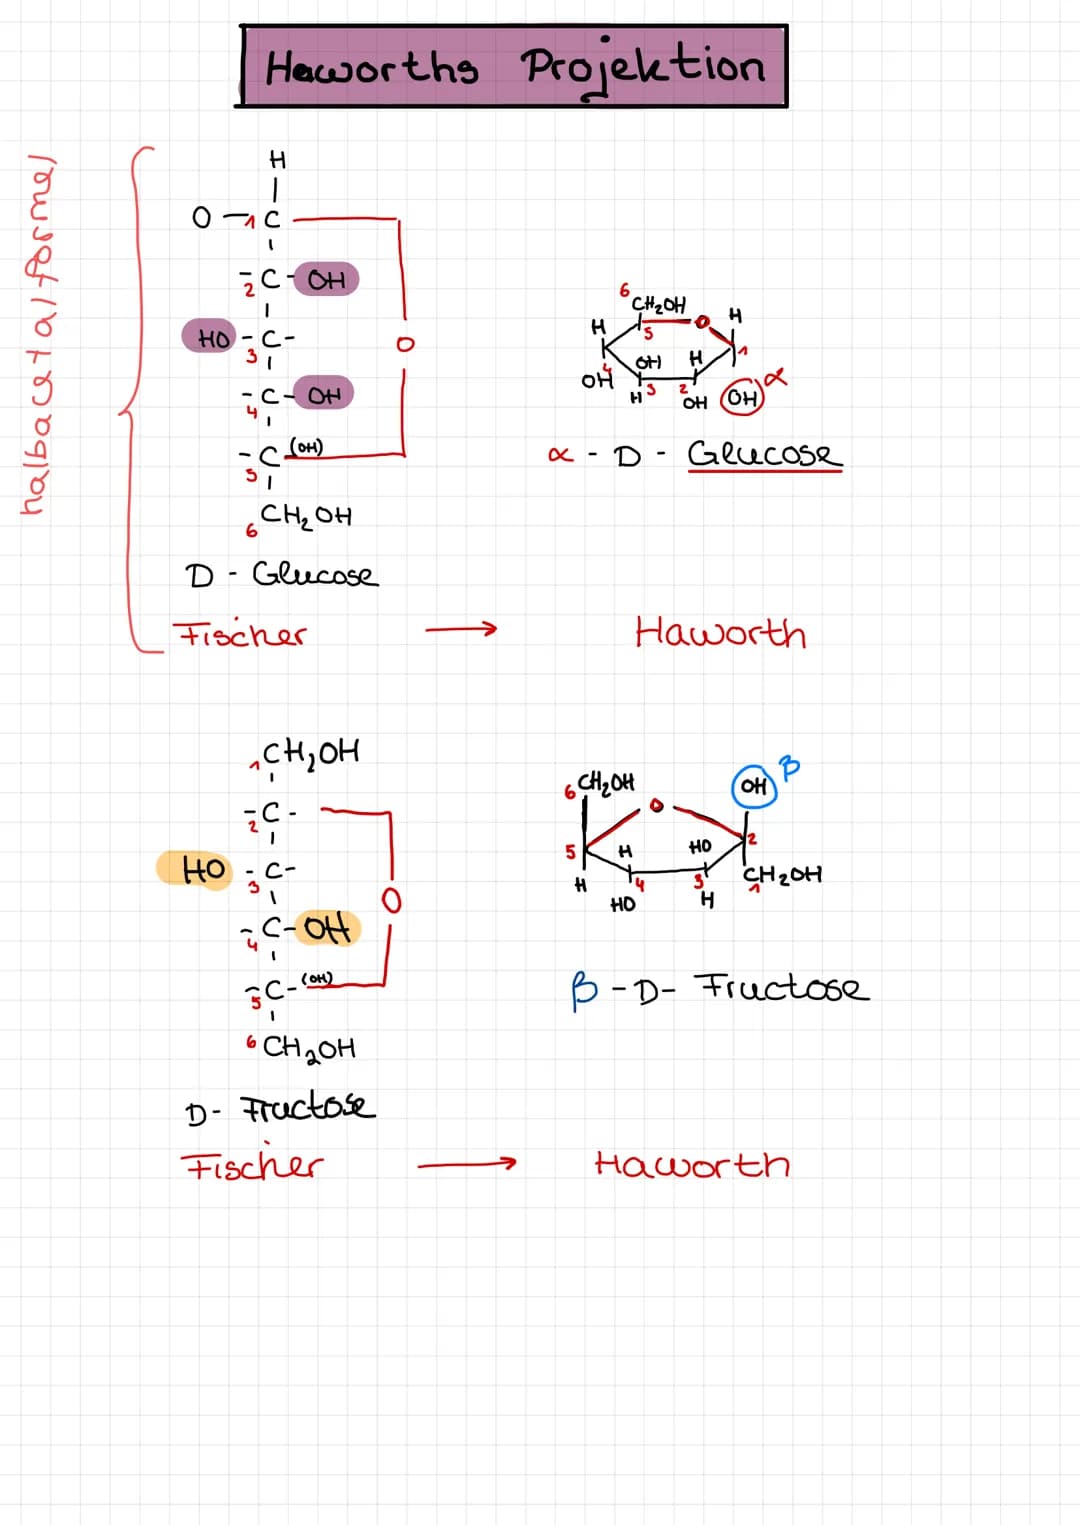 Haworths Projektion
halbacetalformel
H
O -1C
-2C - OH
HO - C -
3
O
- C - OH
4
- C (OH)
5
6 CH2OH
D - Glucose
Fischer → Haworth
6
CH2OH
H 5 O H
4 OH H 1
OH H 3 2 OH OH α
α - D - Glucose
1CH2OH
-2C -
HO - C -
3
O
-4C - OH
-5C - (OH)
6 CH2OH
D - Fructose
Fischer → Haworth
6 CH2OH O OH β
5 H HO 2
H 4 3 CH2OH
1
HO H
β - D - Fructose